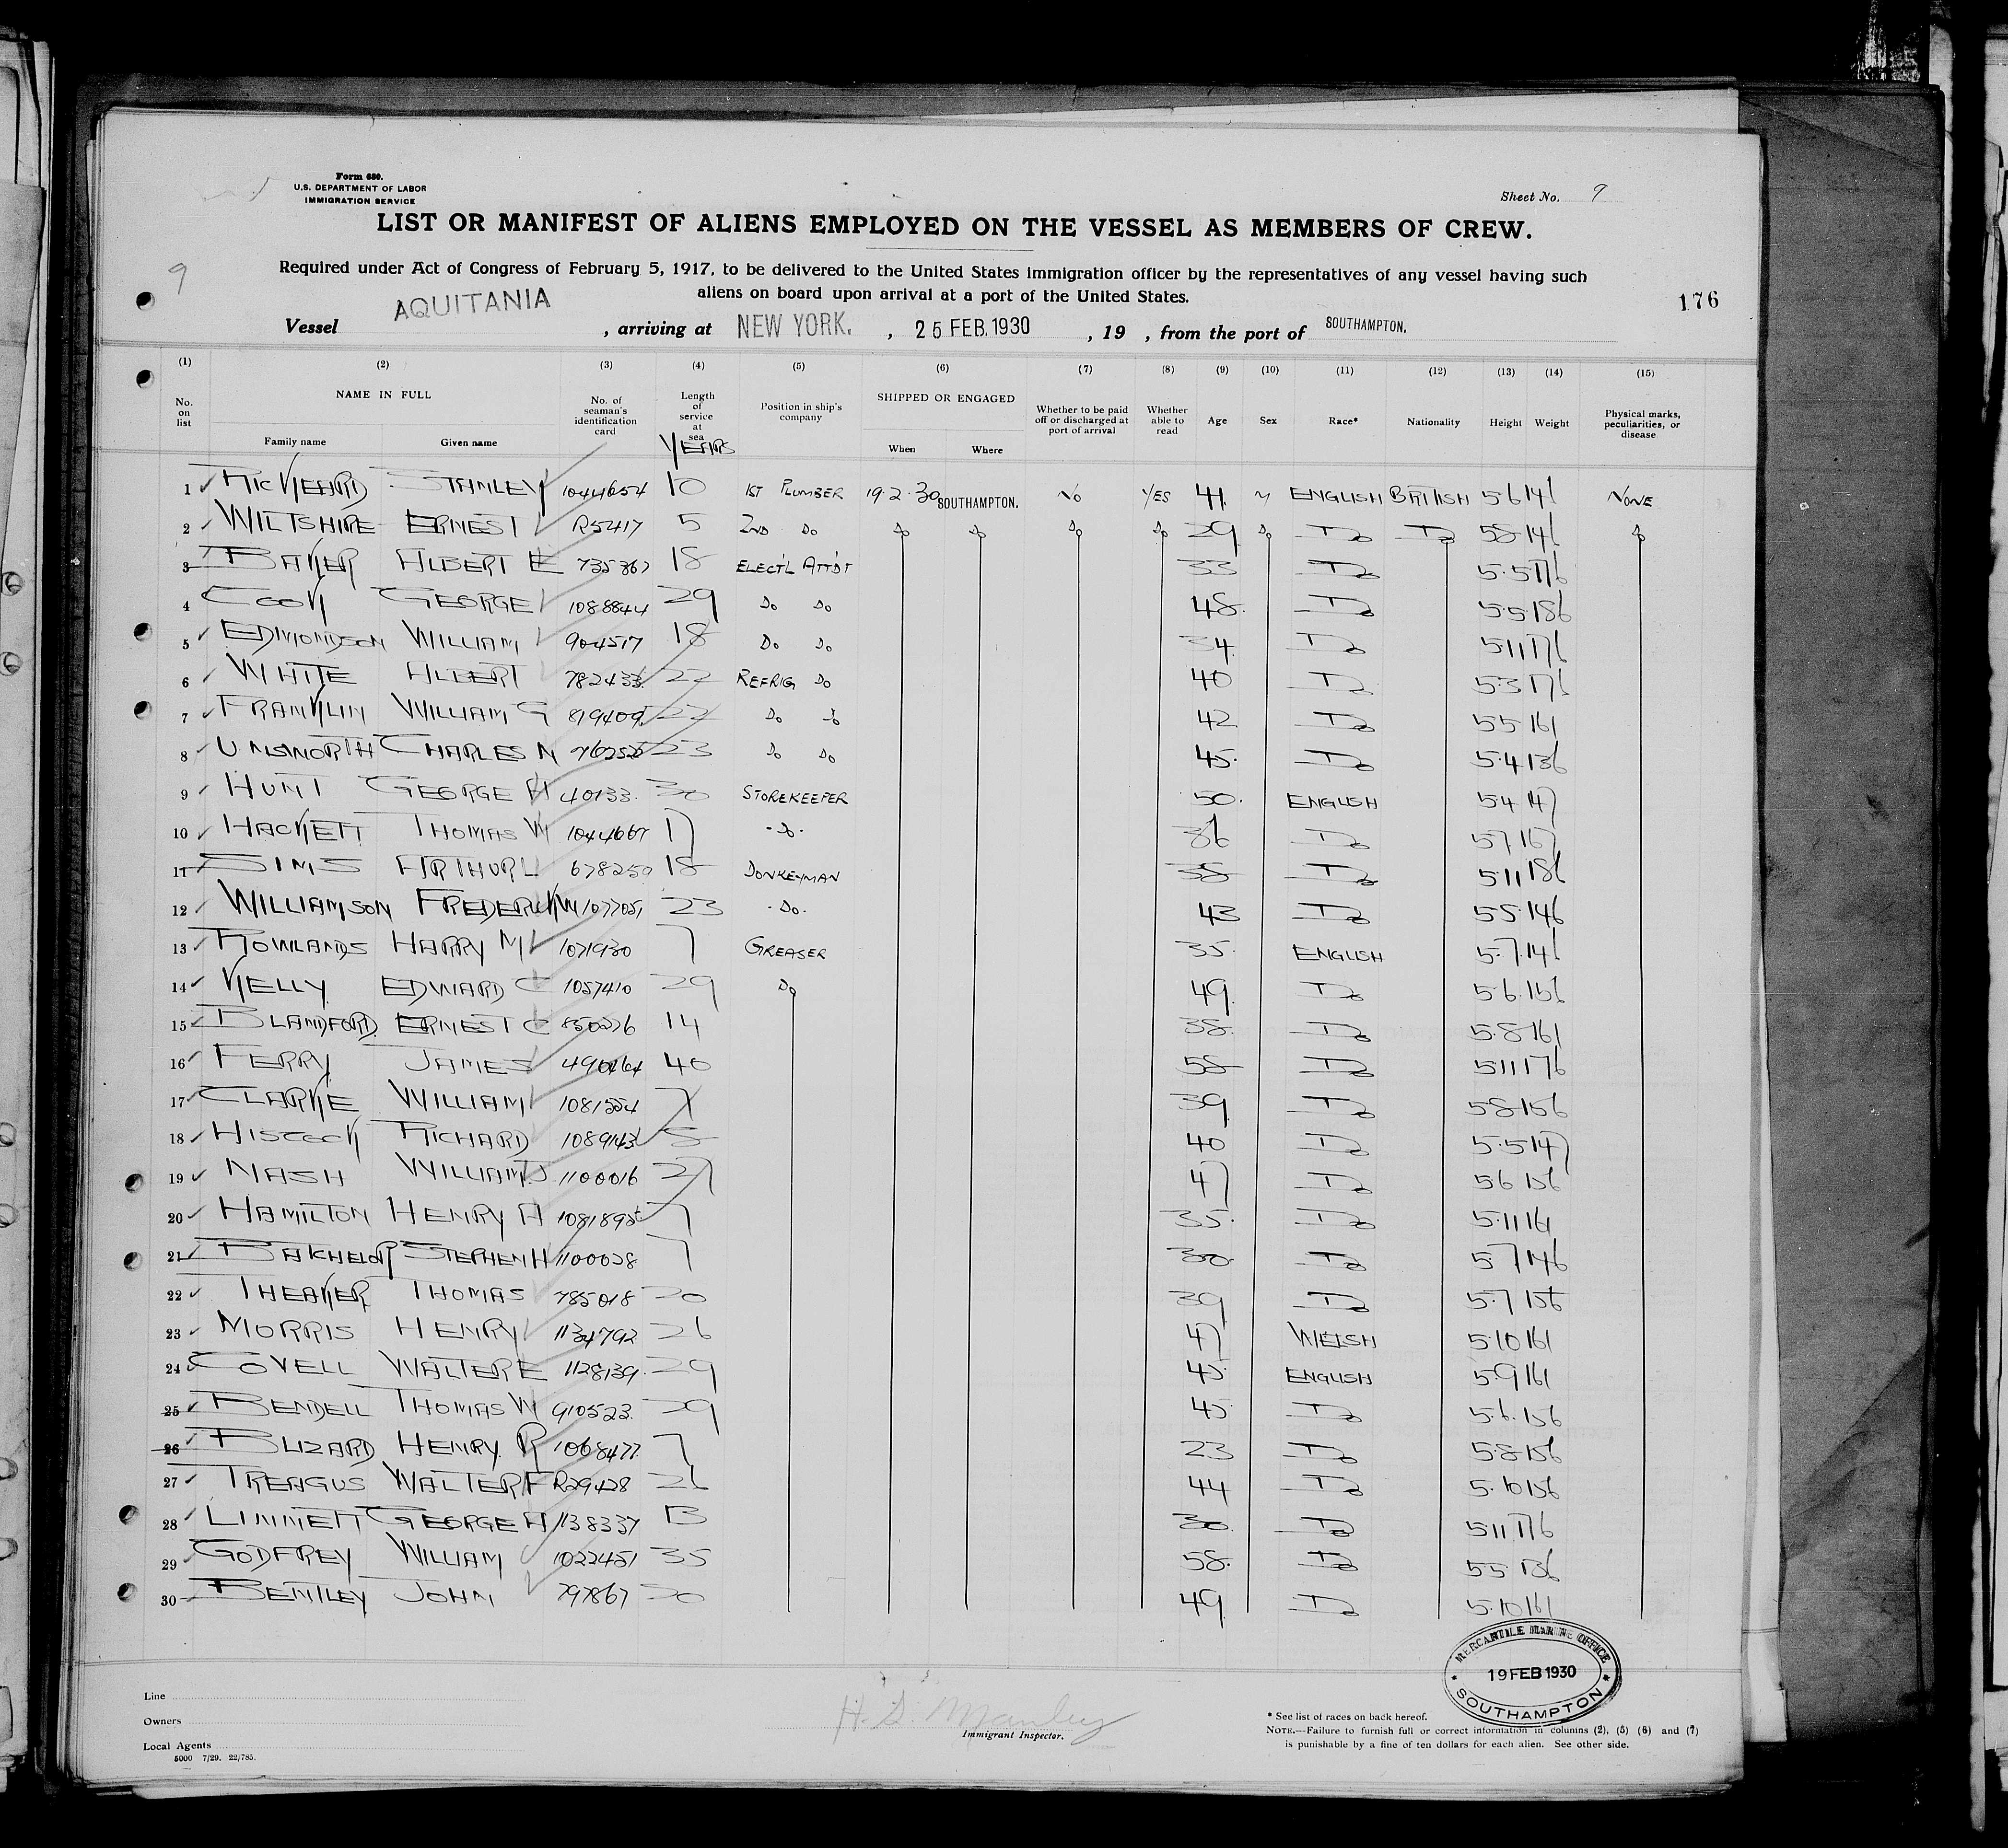 Form 680.
U.S. DEPARTMENT OF LABOR
IMMIGRATION SERVICE
Sheet No. 9
LIST OR MANIFEST OF ALIENS EMPLOYED ON THE VESSEL AS MEMBERS OF CREW.
9
Required under Act of Congress of February 5, 1917, to be delivered to the United States immigration officer by the representatives of any vessel having such
aliens on board upon arrival at a port of the United States.
176
Vessel AQUITANIA , arriving at NEW YORK. , 25 FEB. 1930 , 19 , from the port of SOUTHAMPTON.
(1) (2) (3) (4) (5) (6) (7) (8) (9) (10) (11) (12) (13) (14) (15)
No. on list NAME IN FULL Family name Given name No. of seaman's identification card Length of service at sea YEARS Position in ship's company SHIPPED OR ENGAGED When Where Whether to be paid off or discharged at port of arrival Whether able to read Age Sex Race* Nationality Height Weight Physical marks, peculiarities, or disease
1 STANLEY 1044654 10 1ST PLUMBER 19.2.30 SOUTHAMPTON. NO YES 41 M ENGLISH BRITISH 5.6 141 NONE
2 WILTSHIRE ERNEST R5417 5 2ND DO DO DO DO DO 29 DO DO DO 5.8 141 DO
3 BAKER ALBERT E 735867 18 ELECT'L ATTDT 33 DO 5.5 176
4 COOK GEORGE 1088844 29 DO DO 48 DO 5.5 186
5 EDMONDSON WILLIAM 904517 18 DO DO 34 DO 5.11 171
6 WHITE ALBERT 782433 22 REFRIG DO 40 DO 5.3 171
7 FRANKLIN WILLIAM G 819409 22 DO DO 42 DO 5.5 161
8 UNSWORTH CHARLES N 23 DO DO 45 DO 5.4 136
9 HUNT GEORGE H 40133 30 STOREKEEPER 50 ENGLISH 5.4 147
10 HACKETT THOMAS W 1044667 17 DO 36 DO 5.7 167
11 SIMS ARTHUR L 678250 18 DONKEYMAN 38 DO 5.11 186
12 WILLIAMSON FREDERICK W 1077051 23 DO. 43 DO 5.5 146
13 ROWLANDS HARRY M 1071930 7 GREASER 35 ENGLISH 5.7 141
14 KELLY EDWARD C 1057410 29 DO 49 DO 5.6 156
15 BLANDFORD ERNEST C 850276 14 38 DO 5.8 161
16 FERRY JAMES 490464 40 58 DO 5.11 176
17 CLARKE WILLIAM 1081554 7 39 DO 5.8 156
18 HISCOCK RICHARD 1089143 5 40 DO 5.5 147
19 NASH WILLIAM J. 1100016 27 47 DO 5.6 156
20 HAMILTON HENRY A 1081895 7 35 DO 5.11 161
21 BATCHELOR STEPHEN H 1100028 7 30 DO 5.7 146
22 THEAKER THOMAS 785018 20 39 DO 5.7 156
23 MORRIS HENRY 1134792 26 47 WELSH 5.10 161
24 COVELL WALTER E 1128139 29 45 ENGLISH 5.9 161
25 BENDELL THOMAS W 910523 29 45 DO 5.6 156
26 BLIZARD HENRY R 1068477 7 23 DO 5.8 156
27 TREAGUS WALTER F R29428 26 44 DO 5.10 156
28 LINNETT GEORGE H 1138337 13 30 DO 5.11 176
29 GODFREY WILLIAM 1022451 35 58 DO 5.5 136
30 BENTLEY JOHN 797867 20 49 DO 5.10 161
MERCANTILE MARINE OFFICE
19 FEB 1930
SOUTHAMPTON
Line
Owners
Local Agents
5000 7/29. 22/785.
H. S. Manley
Immigrant Inspector.
* See list of races on back hereof.
NOTE.—Failure to furnish full or correct information in columns (2), (5) (6) and (7)
is punishable by a fine of ten dollars for each alien. See other side.